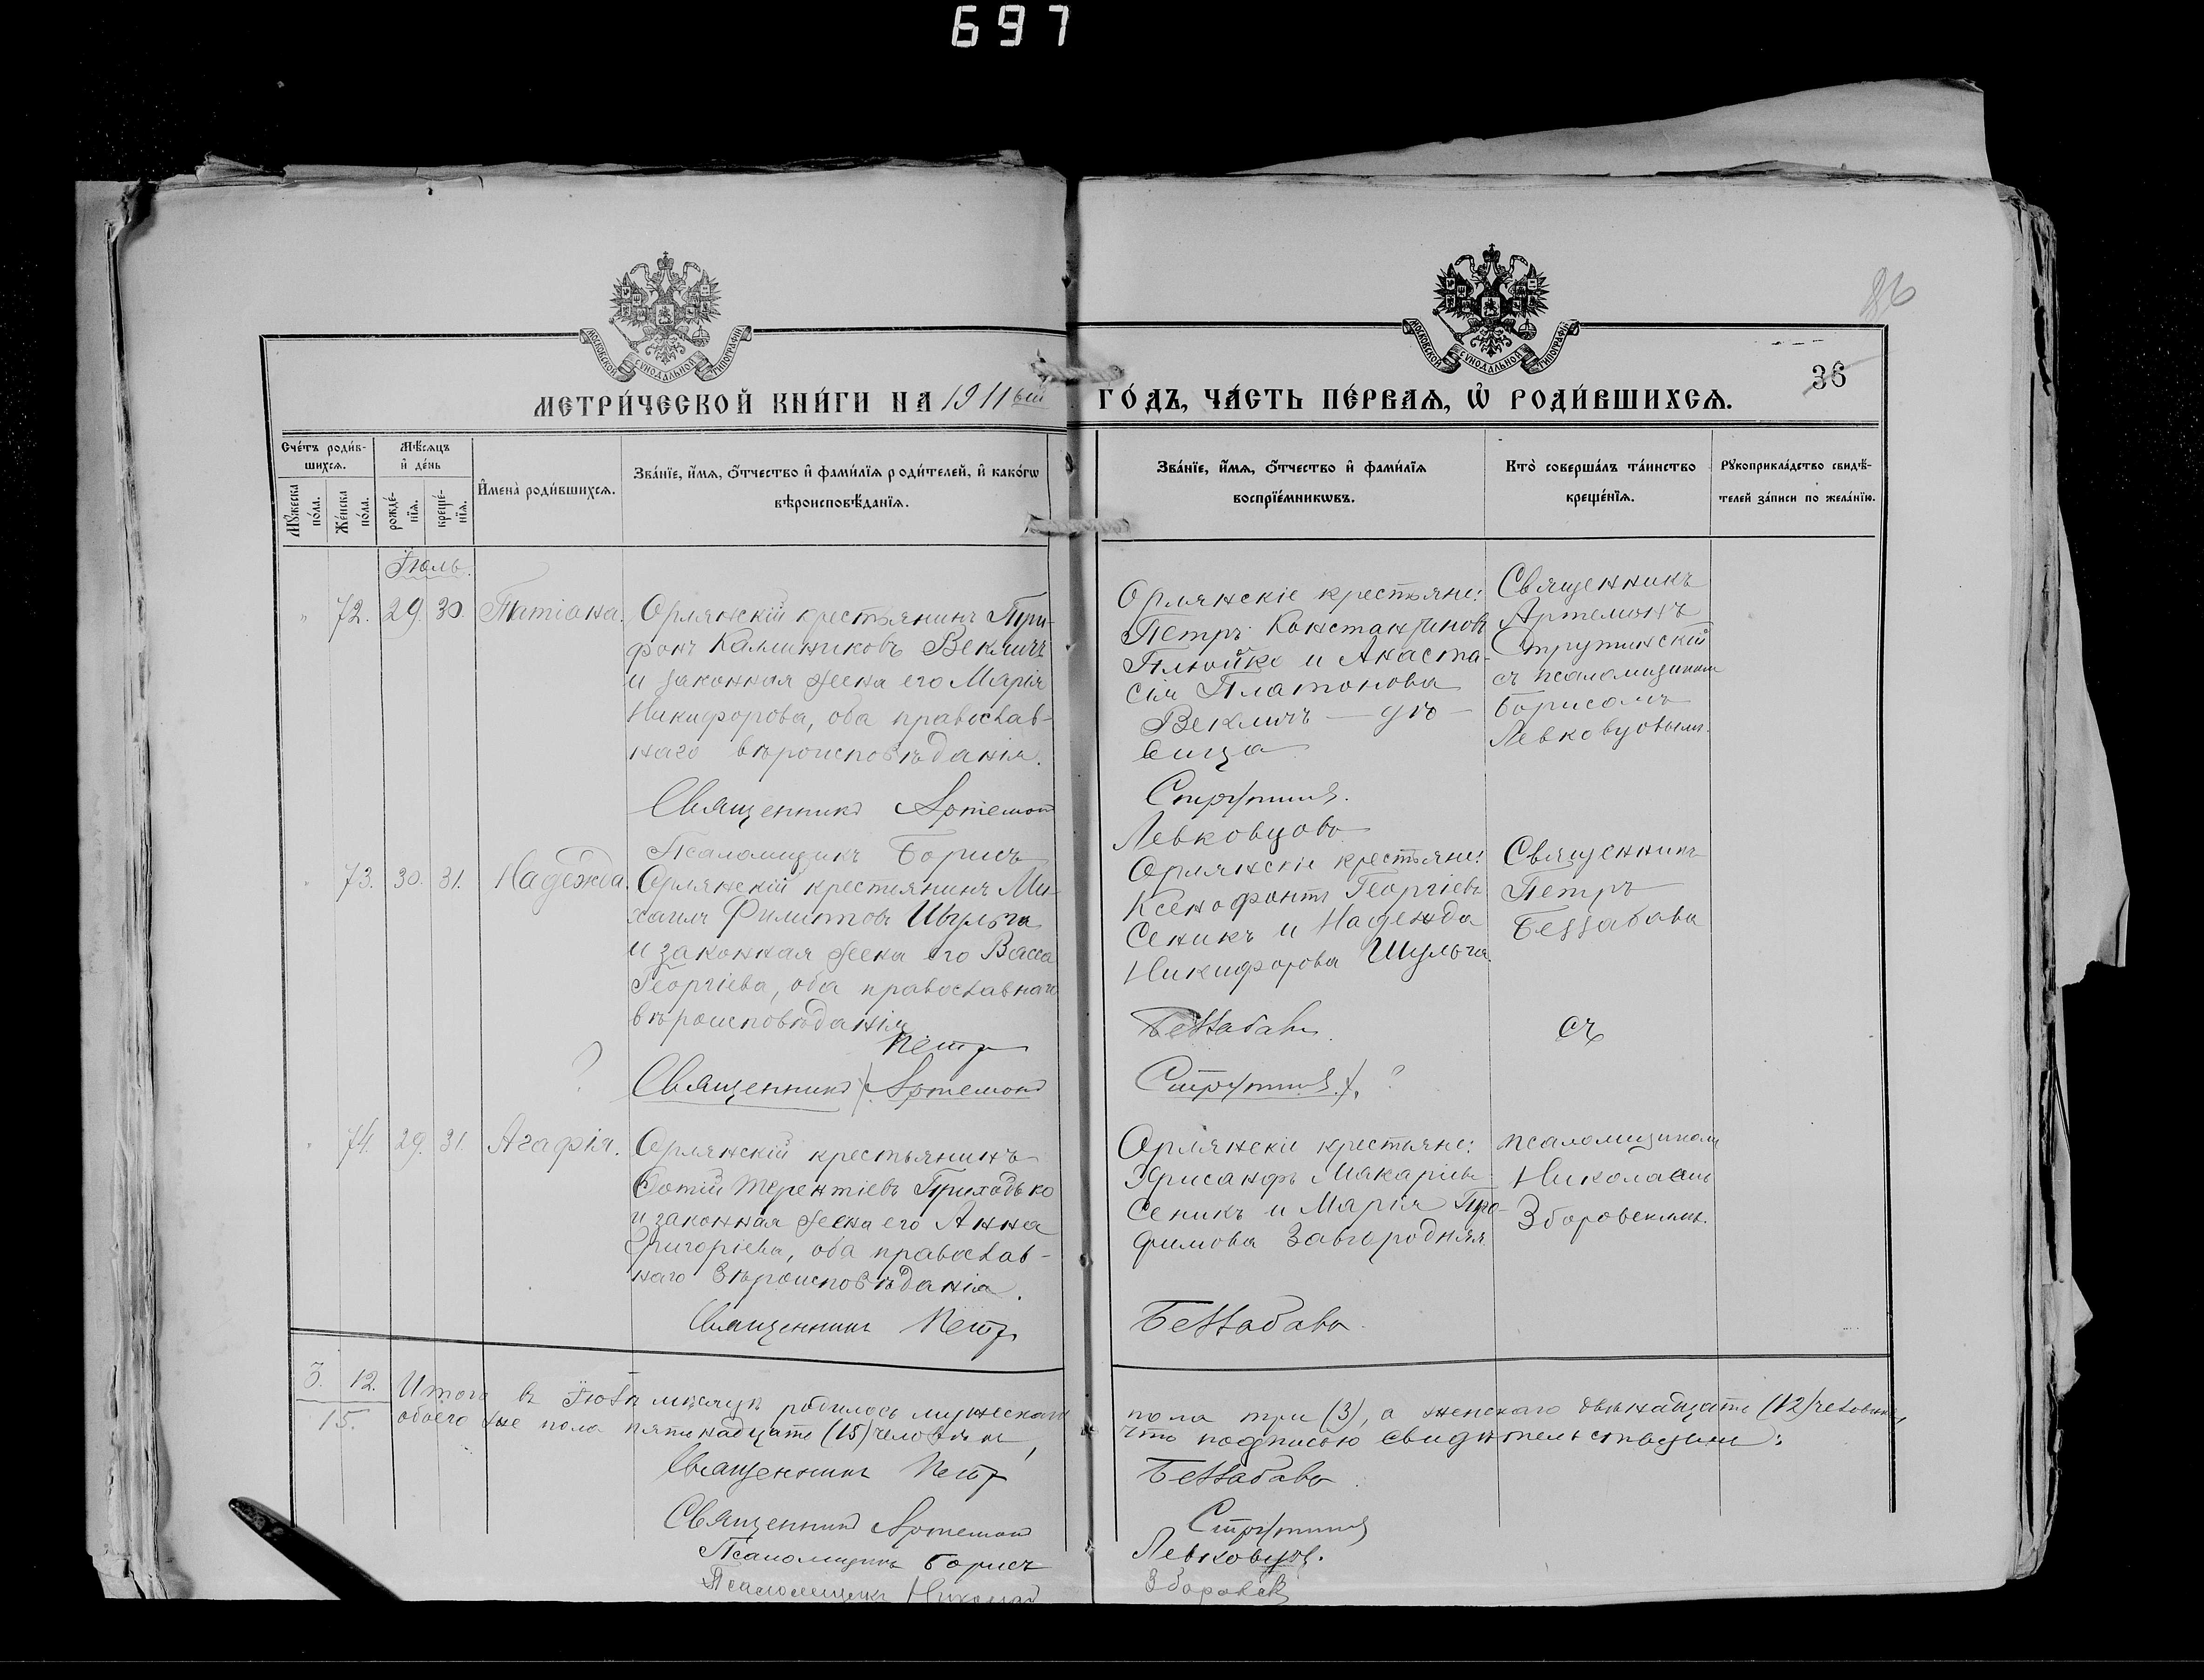 697
86
36
МОСКОВСКОЙ СѴНОДАЛЬНОЙ ТИПОГРАФІИ
МОСКОВСКОЙ СѴНОДАЛЬНОЙ ТИПОГРАФІИ
МЕТРИ́ЧЕСКОЙ КНИ́ГИ НА 1911ый ГО́ДЪ, ЧА́СТЬ ПЕ́РВАЯ, Ѡ РОДИ́ВШИХСЯ.
Сче́тъ роди́в-
шихся.
Мѣ́сяцъ
и҆ де́нь
Мꙋ́жеска
по́ла.
Же́нска
по́ла.
рожде́-
нїя.
креще́-
нїя.
И҆мена̀ роди́вшихся.
Зва́нїе, и҆́мя, о҆́тчество и҆ фами́лїя роди́телей, и҆ како́гѡ
вѣроисповѣ́данїя.
Зва́нїе, и҆́мя, о҆́тчество и҆ фами́лїя
воспрїе́мникѡвъ.
Кто̀ соверша́лъ та́инство
креще́нїя.
Рꙋкоприкла́дство свидѣ́-
телей за́писи по жела́нїю.
Іюль.
72. 29. 30. Татіана.
Орлянскій крестьянинъ Три-
фонъ Калиниковъ Векличъ
и законная жена его Марія
Никифорова, оба православ-
наго вѣроисповѣданія.
Священникъ Артемонъ
Псаломщикъ Борисъ
Орлянскіе крестьяне:
Петръ Константиновъ
Плюйко и Анаста-
сія Платонова
Векличъ — дѣ-
вица
Струтинскій.
Левковцовъ
Священникъ
Артемонъ
Струтинскій
съ псаломщикомъ
Борисомъ
Левковцовымъ.
73. 30. 31. Надежда.
Орлянскій крестьянинъ Ми-
хаилъ Филиповъ Шульга
и законная жена его Васса
Георгіева, оба православнаго
вѣроисповѣданія
Петръ
? Священникъ (Артемонъ
Орлянскіе крестьяне:
Ксенофонтъ Георгіевъ
Сеникъ и Надежда
Никифорова Шульга.
Беззабава.
Струтинскій). ?
Священникъ
Петръ
Беззабава
съ
74. 29. 31. Агафія.
Орлянскій крестьянинъ
Фотій Терентіевъ Приходько
и законная жена его Анна
Григоріева, оба православ-
наго вѣроисповѣданія.
Священникъ Петръ
Орлянскіе крестьяне:
Хрисанфъ Макаріевъ
Сеникъ и Марія Тро-
фимова Завгородняя
Беззабава.
псаломщикомъ
Николаемъ
Зборовскимъ.
3. 12.
15.
Итого въ Іюлѣ мѣсяцѣ родилось мужескаго пола три (3), а женскаго двѣнадцать (12) человѣкъ,
обоего же пола пятнадцать (15) человѣкъ, что подписью свидѣтельствуемъ:
Священникъ Петръ Беззабава.
Священникъ Артемонъ Струтинскій
Псаломщикъ Борисъ Левковцовъ.
Псаломщикъ Николай Зборовскій